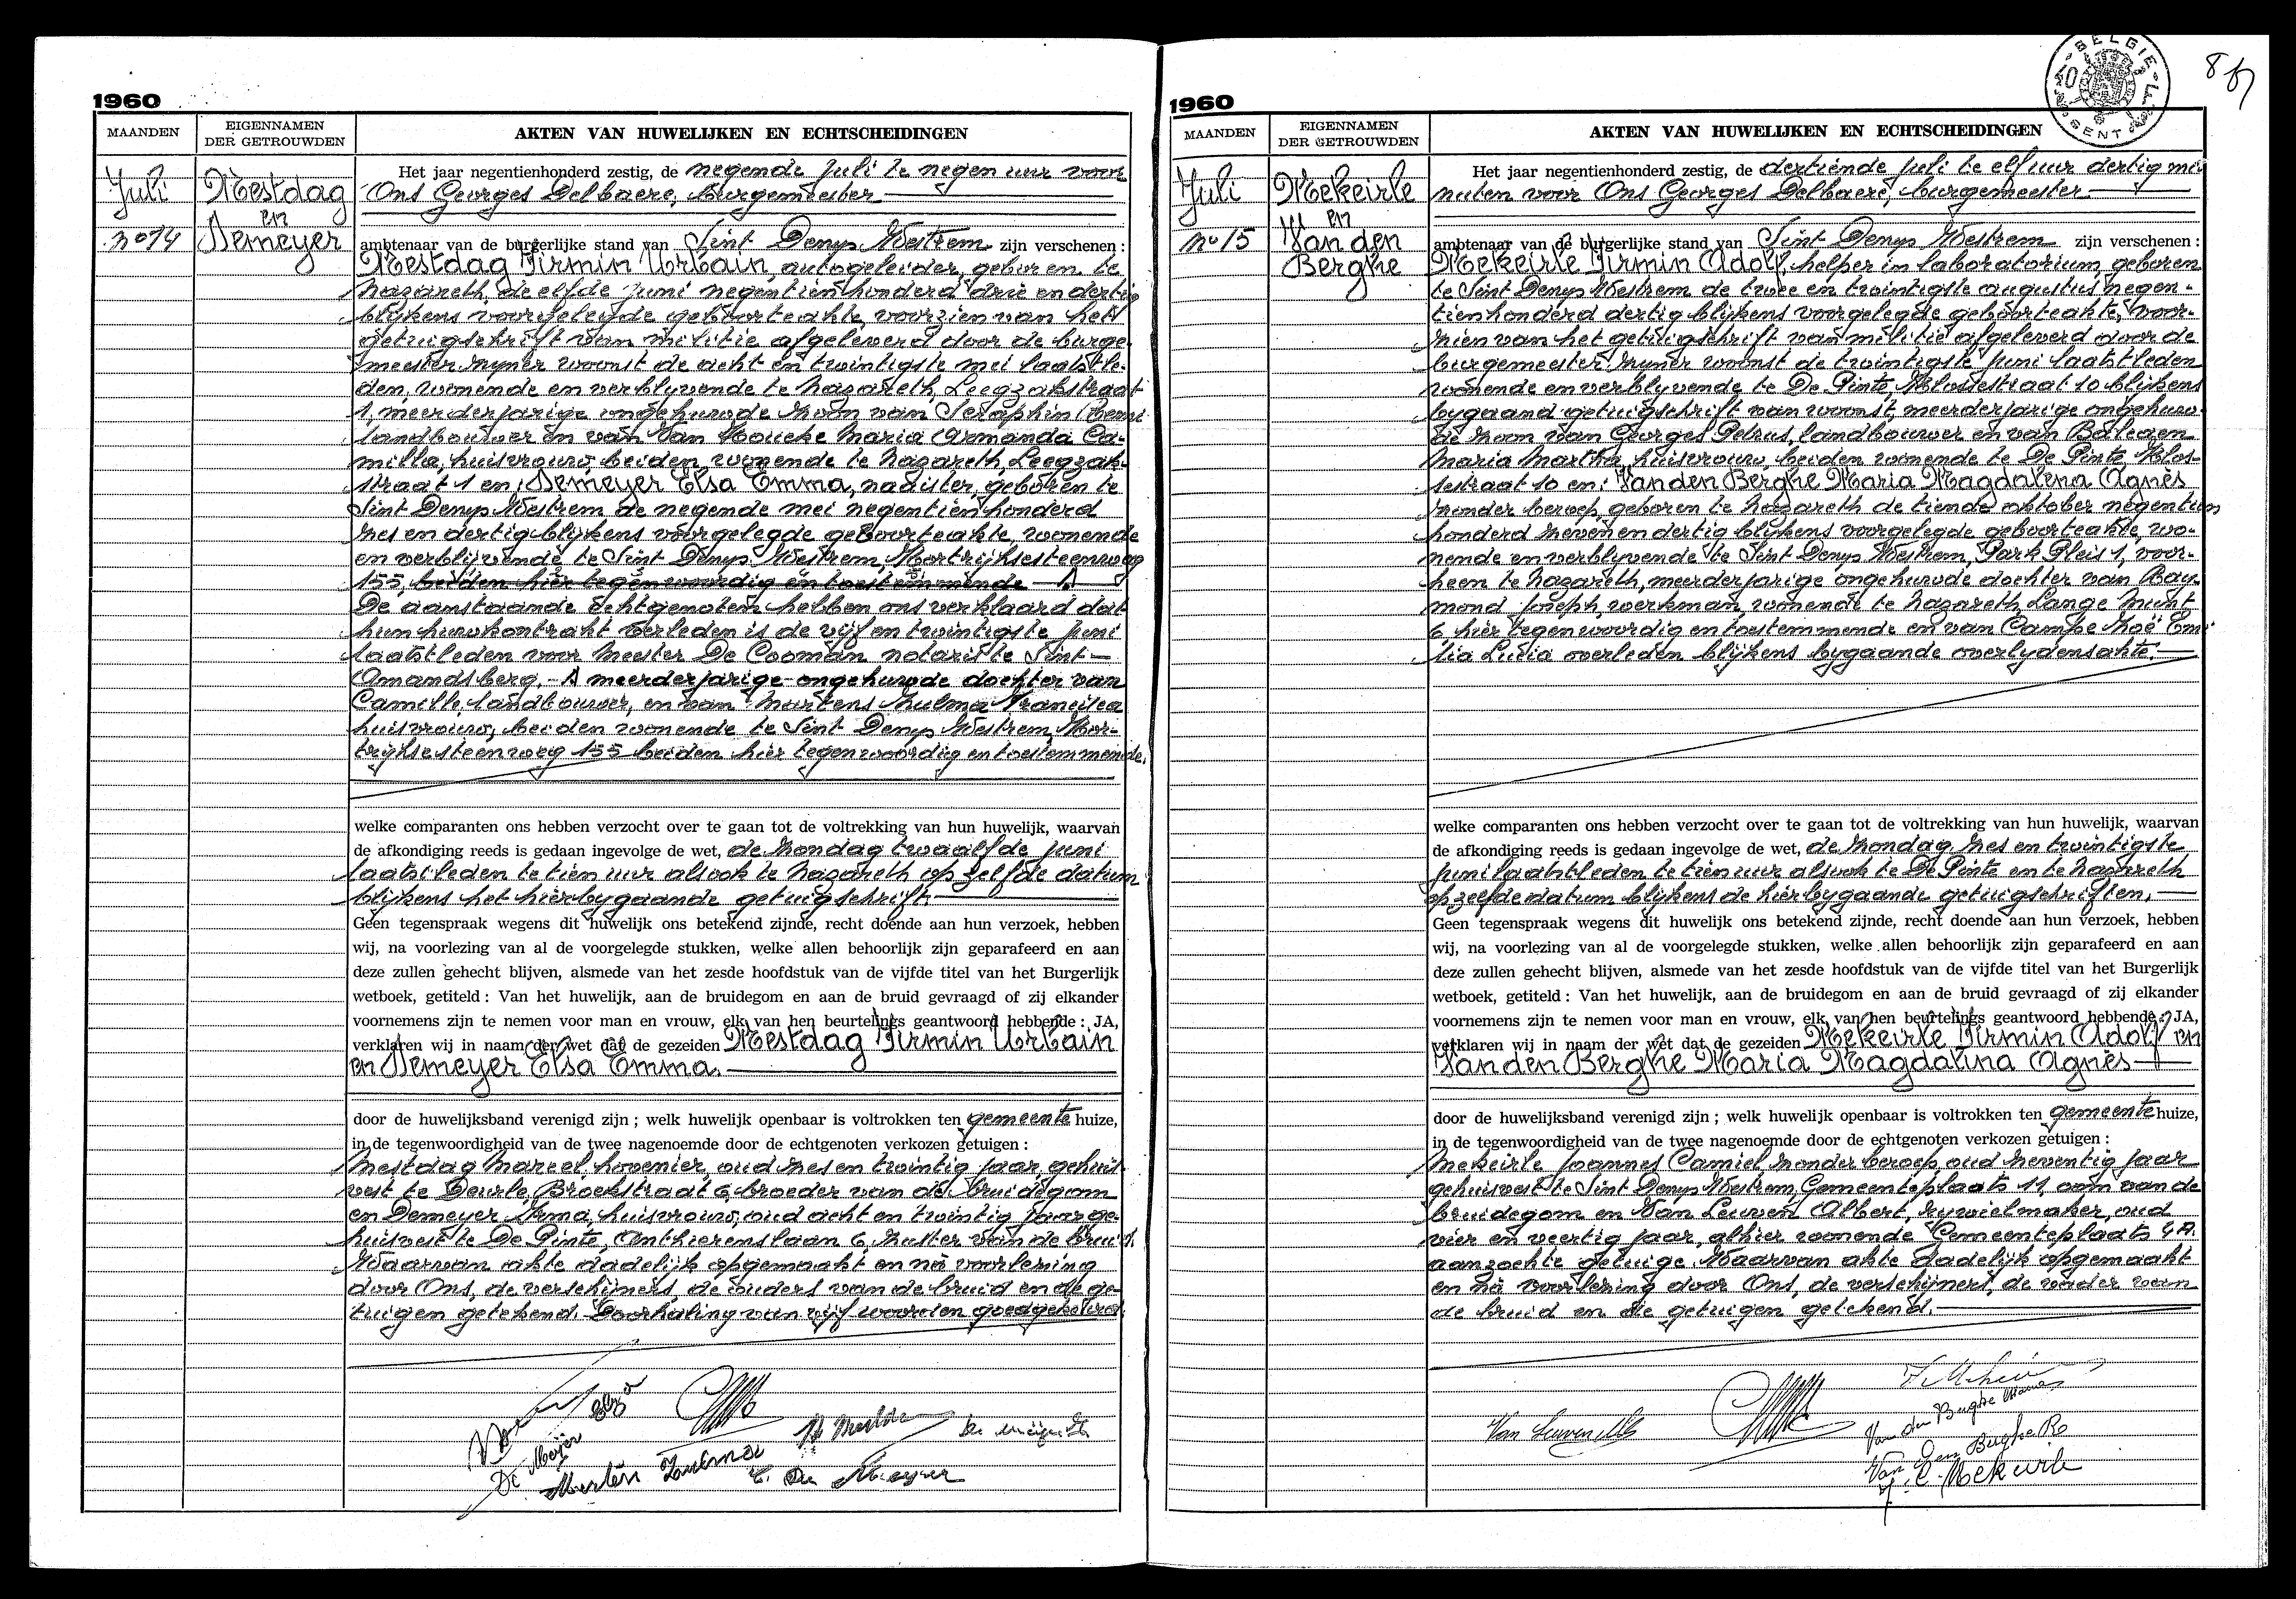 1960
MAANDEN
EIGENNAMEN
DER GETROUWDEN
AKTEN VAN HUWELIJKEN EN ECHTSCHEIDINGEN
Juli
No 14
Mestdag
en
Demeyer
Het jaar negentienhonderd zestig, de negende juli te negen uur voor
Ons Georges Delbaere, burgemeester
ambtenaar van de burgerlijke stand van Sint Denys Westrem zijn verschenen :
Mestdag Firmin Urbain, autogeleider, geboren te
Nazareth, de elfde juni negentienhonderd drie en dertig
blijkens voorgelegde geboorteakte, voorzien van het
getuigschrift van militie afgeleverd door de burge-
meester zyner woonst de acht en twintigste mei laatstle-
den, wonende en verblyvende te Nazareth, Leegzakstraat
1, meerderjarige ongehuwde zoon van Seraphin
landbouwer en van Van Houcke Maria Armanda Ca-
milla, huisvrouw, beiden wonende te Nazareth, Leegzak-
straat 1 en; Demeyer Elsa Emma, naaister, geboren te
Sint Denys Westrem de negende mei negentienhonderd
zes en dertig blijkens voorgelegde geboorteakte, wonende
en verblijvende te Sint Denys Westrem, Kortrijksesteenweg
155, beiden hier tegenwoordig en toestemmende
De aanstaande echtgenoten hebben ons verklaard dat
hun huwkontrakt verleden is de vijf en twintigste juni
laatstleden voor meester De Cooman notaris te Sint-
Amandsberg. - meerderjarige ongehuwde dochter van
Camille landbouwer, en van Martens Zulma Francisca
huisvrouw, beiden wonende te Sint Denys Westrem, Kor-
trijksesteenweg 155 beiden hier tegenwoordig en toestemmende.
welke comparanten ons hebben verzocht over te gaan tot de voltrekking van hun huwelijk, waarvan
de afkondiging reeds is gedaan ingevolge de wet, de zondag twaalfde juni
laatstleden te tien uur alsook te Nazareth op zelfde datum
blijkens het hierbygaande getuigschrift.
Geen tegenspraak wegens dit huwelijk ons betekend zijnde, recht doende aan hun verzoek, hebben
wij, na voorlezing van al de voorgelegde stukken, welke allen behoorlijk zijn geparafeerd en aan
deze zullen gehecht blijven, alsmede van het zesde hoofdstuk van de vijfde titel van het Burgerlijk
wetboek, getiteld : Van het huwelijk, aan de bruidegom en aan de bruid gevraagd of zij elkander
voornemens zijn te nemen voor man en vrouw, elk van hen beurtelings geantwoord hebbende : JA,
verklaren wij in naam der wet dat de gezeiden Mestdag Firmin Urbain
en Demeyer Elsa Emma.
door de huwelijksband verenigd zijn ; welk huwelijk openbaar is voltrokken ten gemeente huize,
in de tegenwoordigheid van de twee nagenoemde door de echtgenoten verkozen getuigen :
Mestdag Marcel, hovenier, oud zes en twintig jaar, gehuis-
vest te Deurle, Broekstraat 6, broeder van de bruidegom
en Demeyer Irma, huisvrouw, oud acht en twintig jaar ge-
huisvest te De Pinte, Anthierenslaan 6, zuster van de bruid.
Waarvan akte dadelijk opgemaakt en na voorlezing
door Ons, de verschijners, de ouders van de bruid en de ge-
tuigen getekend. Doorhaling van vijf woorden goedgekeurd.
De Meijer
Marten Zulma
C. De Meyer
1960
BELGIE
GENT
MAANDEN
EIGENNAMEN
DER GETROUWDEN
AKTEN VAN HUWELIJKEN EN ECHTSCHEIDINGEN
Juli
No 15
Mekeirle
en
Van den
Berghe
Het jaar negentienhonderd zestig, de dertiende juli te elf uur dertig mi-
nuten voor Ons Georges Delbaere, burgemeester
ambtenaar van de burgerlijke stand van Sint Denys Westrem zijn verschenen :
Mekeirle Firmin Adolf, helper in laboratorium, geboren
te Sint Denys Westrem de twee en twintigste augustus negen-
tienhonderd dertig blijkens voorgelegde geboorteakte, voor-
zien van het getuigschrift van militie afgeleverd door de
burgemeester zyner woonst de twintigste juni laatstleden
wonende en verblyvende te De Pinte, Klossestraat 10 blijkens
bygaand getuigschrift van woonst, meerderjarige ongehuw-
de zoon van Georges Petrus, landbouwer en van Baleaen
Maria Martha, huisvrouw, beiden wonende te De Pinte, Klos-
sestraat 10 en: Van den Berghe Maria Magdalena Agnès
zonder beroep, geboren te Nazareth de tiende oktober negentien
honderd zeven en dertig blijkens voorgelegde geboorteakte, wo-
nende en verblyvende te Sint Denys Westrem, Park Pleis 1, voor-
heen te Nazareth, meerderjarige ongehuwde dochter van Ray-
mond Joseph, werkman, wonende te Nazareth, Lange Munt
6 hier tegenwoordig en toestemmende en van Campe Zoë Emi-
lia Ludia overleden blijkens bygaande overlydensakte.
welke comparanten ons hebben verzocht over te gaan tot de voltrekking van hun huwelijk, waarvan
de afkondiging reeds is gedaan ingevolge de wet, de zondag zes en twintigste
juni laatstleden te tien uur alsook te De Pinte en te Nazareth
op zelfde datum blijkens de hierbygaande getuigschriften.
Geen tegenspraak wegens dit huwelijk ons betekend zijnde, recht doende aan hun verzoek, hebben
wij, na voorlezing van al de voorgelegde stukken, welke allen behoorlijk zijn geparafeerd en aan
deze zullen gehecht blijven, alsmede van het zesde hoofdstuk van de vijfde titel van het Burgerlijk
wetboek, getiteld : Van het huwelijk, aan de bruidegom en aan de bruid gevraagd of zij elkander
voornemens zijn te nemen voor man en vrouw, elk van hen beurtelings geantwoord hebbende : JA,
verklaren wij in naam der wet dat de gezeiden Mekeirle Firmin Adolf en
Van den Berghe Maria Magdalena Agnès
door de huwelijksband verenigd zijn ; welk huwelijk openbaar is voltrokken ten gemeente huize,
in de tegenwoordigheid van de twee nagenoemde door de echtgenoten verkozen getuigen :
Mekeirle Joannes Camiel, zonder beroep, oud zeventig jaar
gehuisvest te Sint Denys Westrem, Gemeenteplaats 11, oom van de
bruidegom en Van Leuven Albert, rywielmaker, oud
vier en veertig jaar, alhier wonende Gemeenteplaats 4A.
aanzochte getuige. Waarvan akte dadelijk opgemaakt
en na voorlezing door Ons, de verschijners, de vader van
de bruid en de getuigen getekend.
Van Leuven Alb
Van den Berghe Maria
Van Den Berghe Ra
J. C. Mekeirle